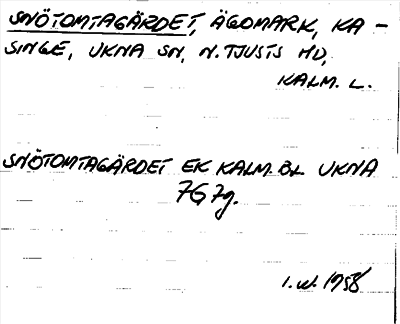 SNÖTOMTAGÄRDET, ÄGOMARK, KA-
SINGE, UKNA SN, N. TJUSTS HD,
KALM. L.
SNÖTOMTAGÄRDET EK KALM. BL UKNA
7G7g.
1958